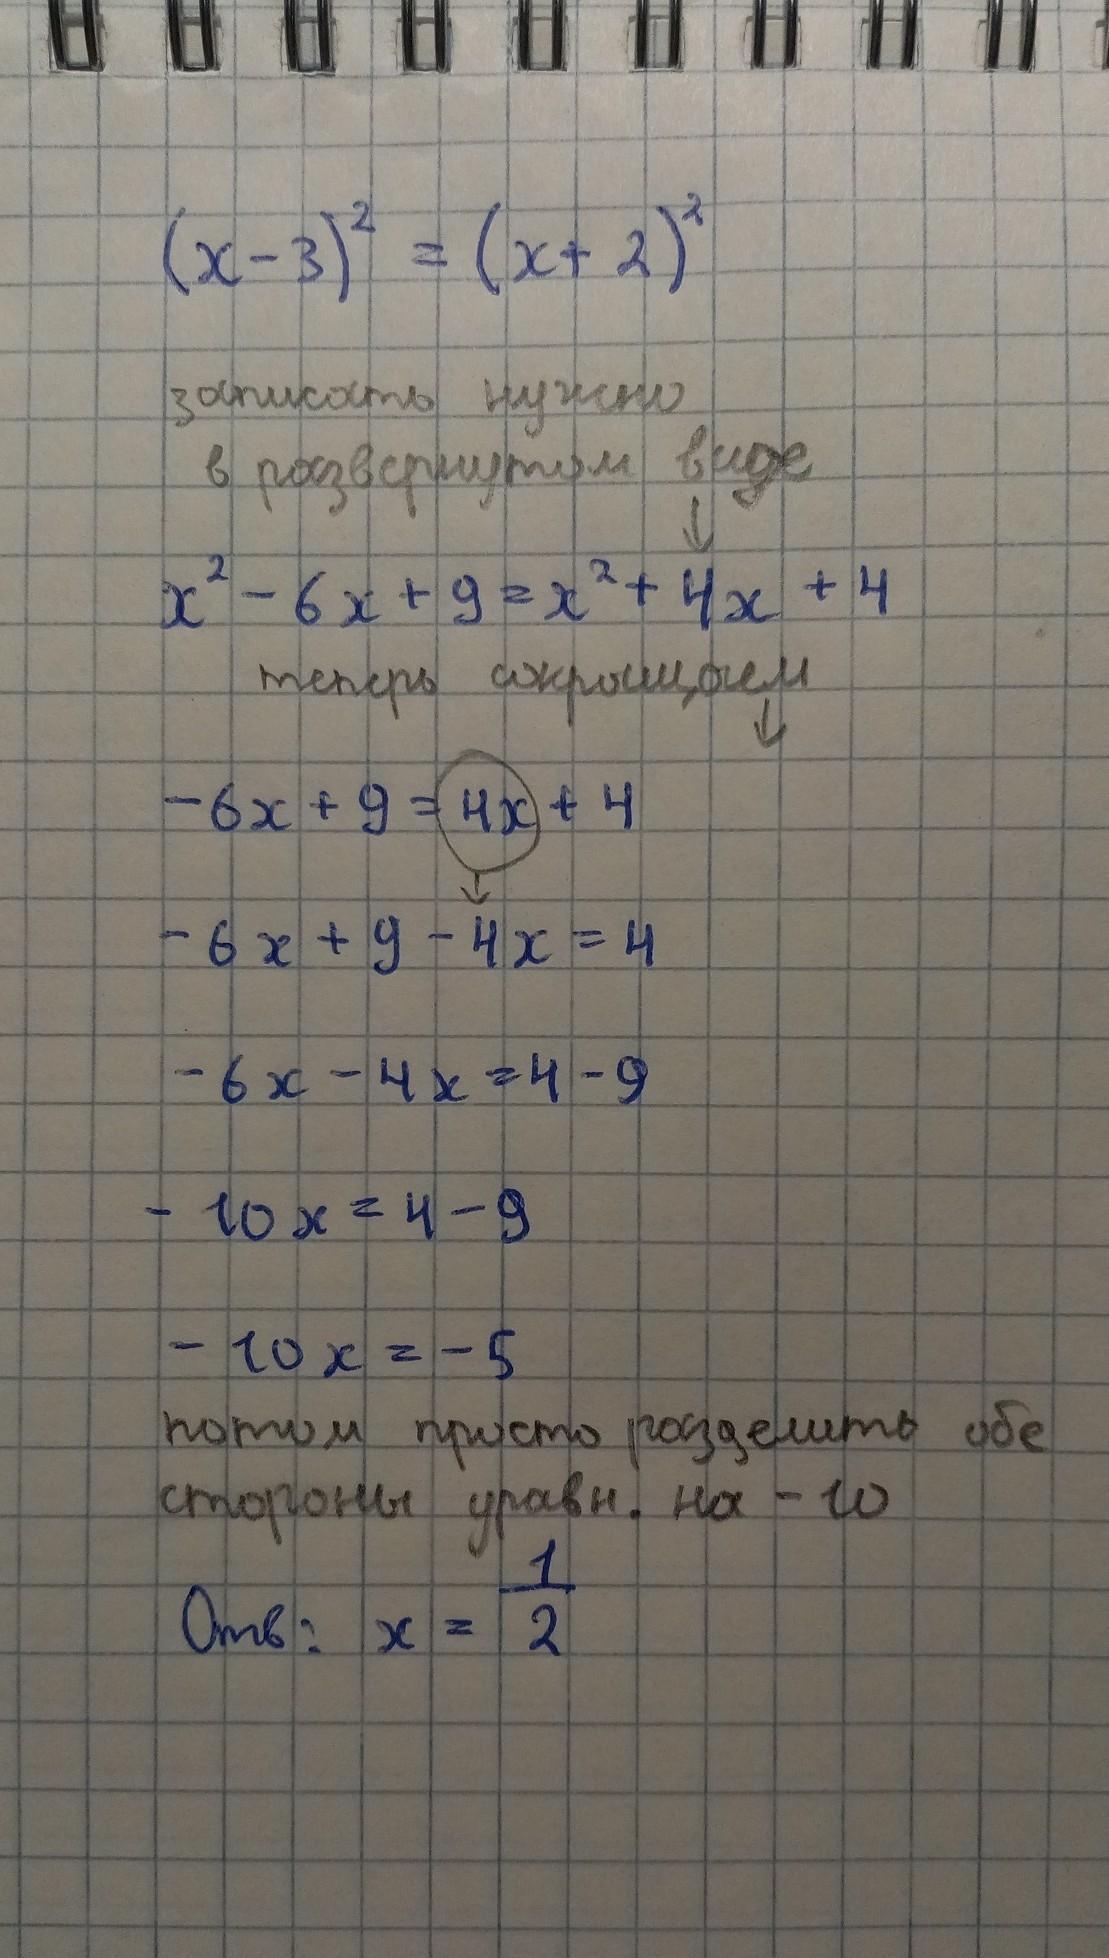 (x-3)² = (x+2)²
записать нужно
в развернутом виде
↓
x² - 6x + 9 = x² + 4x + 4
теперь сокращаем
↓
-6x + 9 = 4x + 4
↓
-6x + 9 - 4x = 4
-6x - 4x = 4 - 9
-10x = 4 - 9
-10x = -5
потом просто разделить обе
стороны уравн. на -10
Отв: x = 1/2